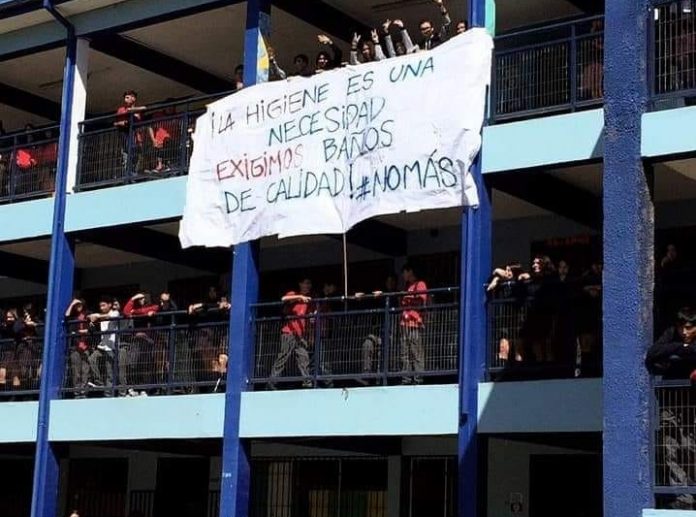 ¡LA HIGIENE ES UNA
NECESIDAD
EXIGIMOS BAÑOS
DE CALIDAD! #NOMÁS